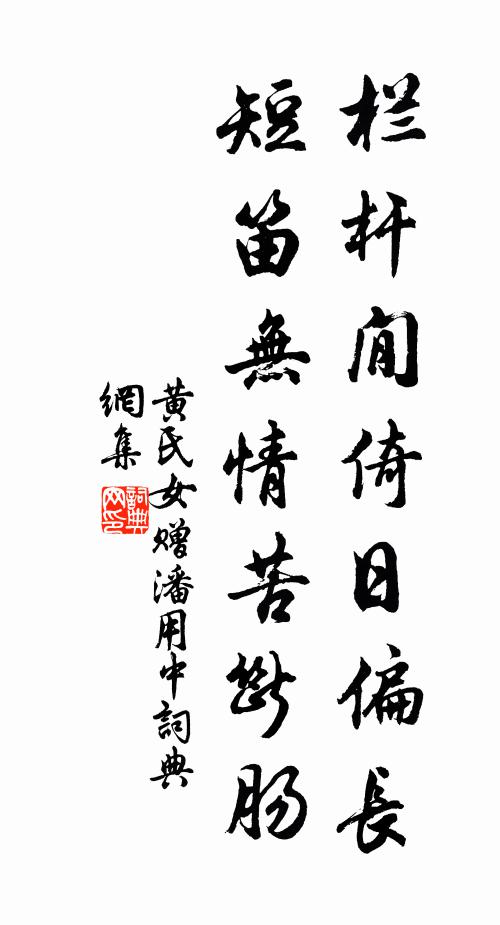 栏杆閒倚日偏長
短笛無情苦斷肠
黄氏女赠潘用中詞典
網集
詞典网印